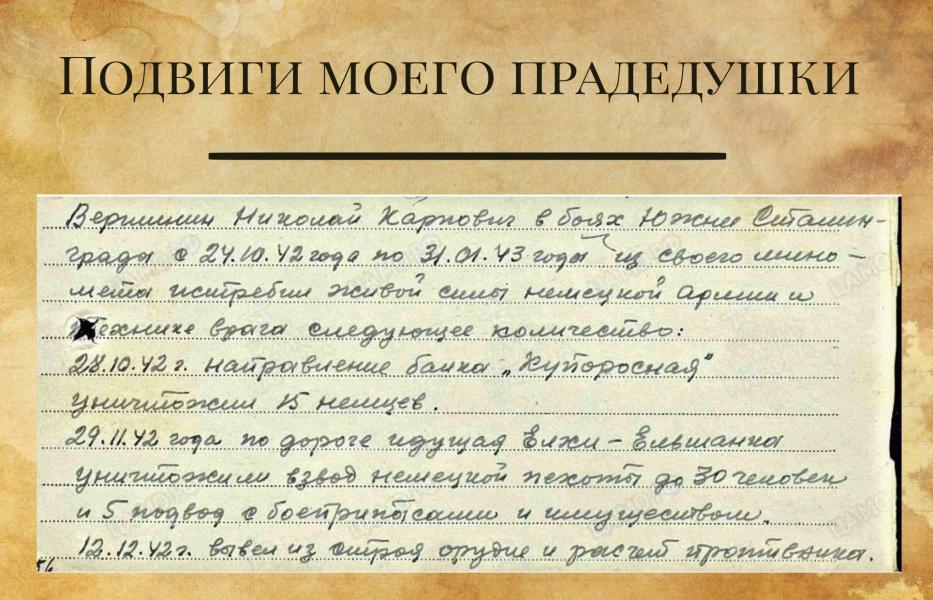 Подвиги моего прадедушки
Вершинин Николай Карпович в боях Южнее Сталин-
града с 24.10.42 года по 31.01.43 года из своего мино-
мета истребил живой силы немецкой армии и
технике врага следующее количество:
28.10.42 г. направление балка „Купоросная"
уничтожил 15 немцев.
29.11.42 года по дороге идущая Елхи – Ельшанка
уничтожили взвод немецкой пехоты до 30 человек
и 5 подвод с боеприпасами и имуществом.
12.12.42 г. вывел из строя орудие и расчет противника.